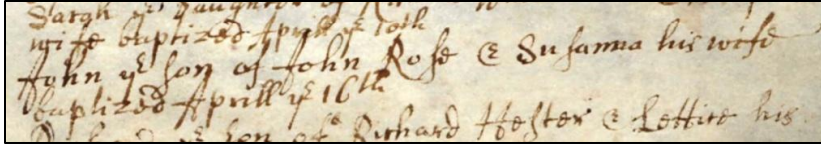 Sarah ye daughter of
wife baptized Aprill ye 10th
John ye son of John Rose & Susanna his wife
baptized Aprill ye 16th
ye son of Richard Hester & Lettice his